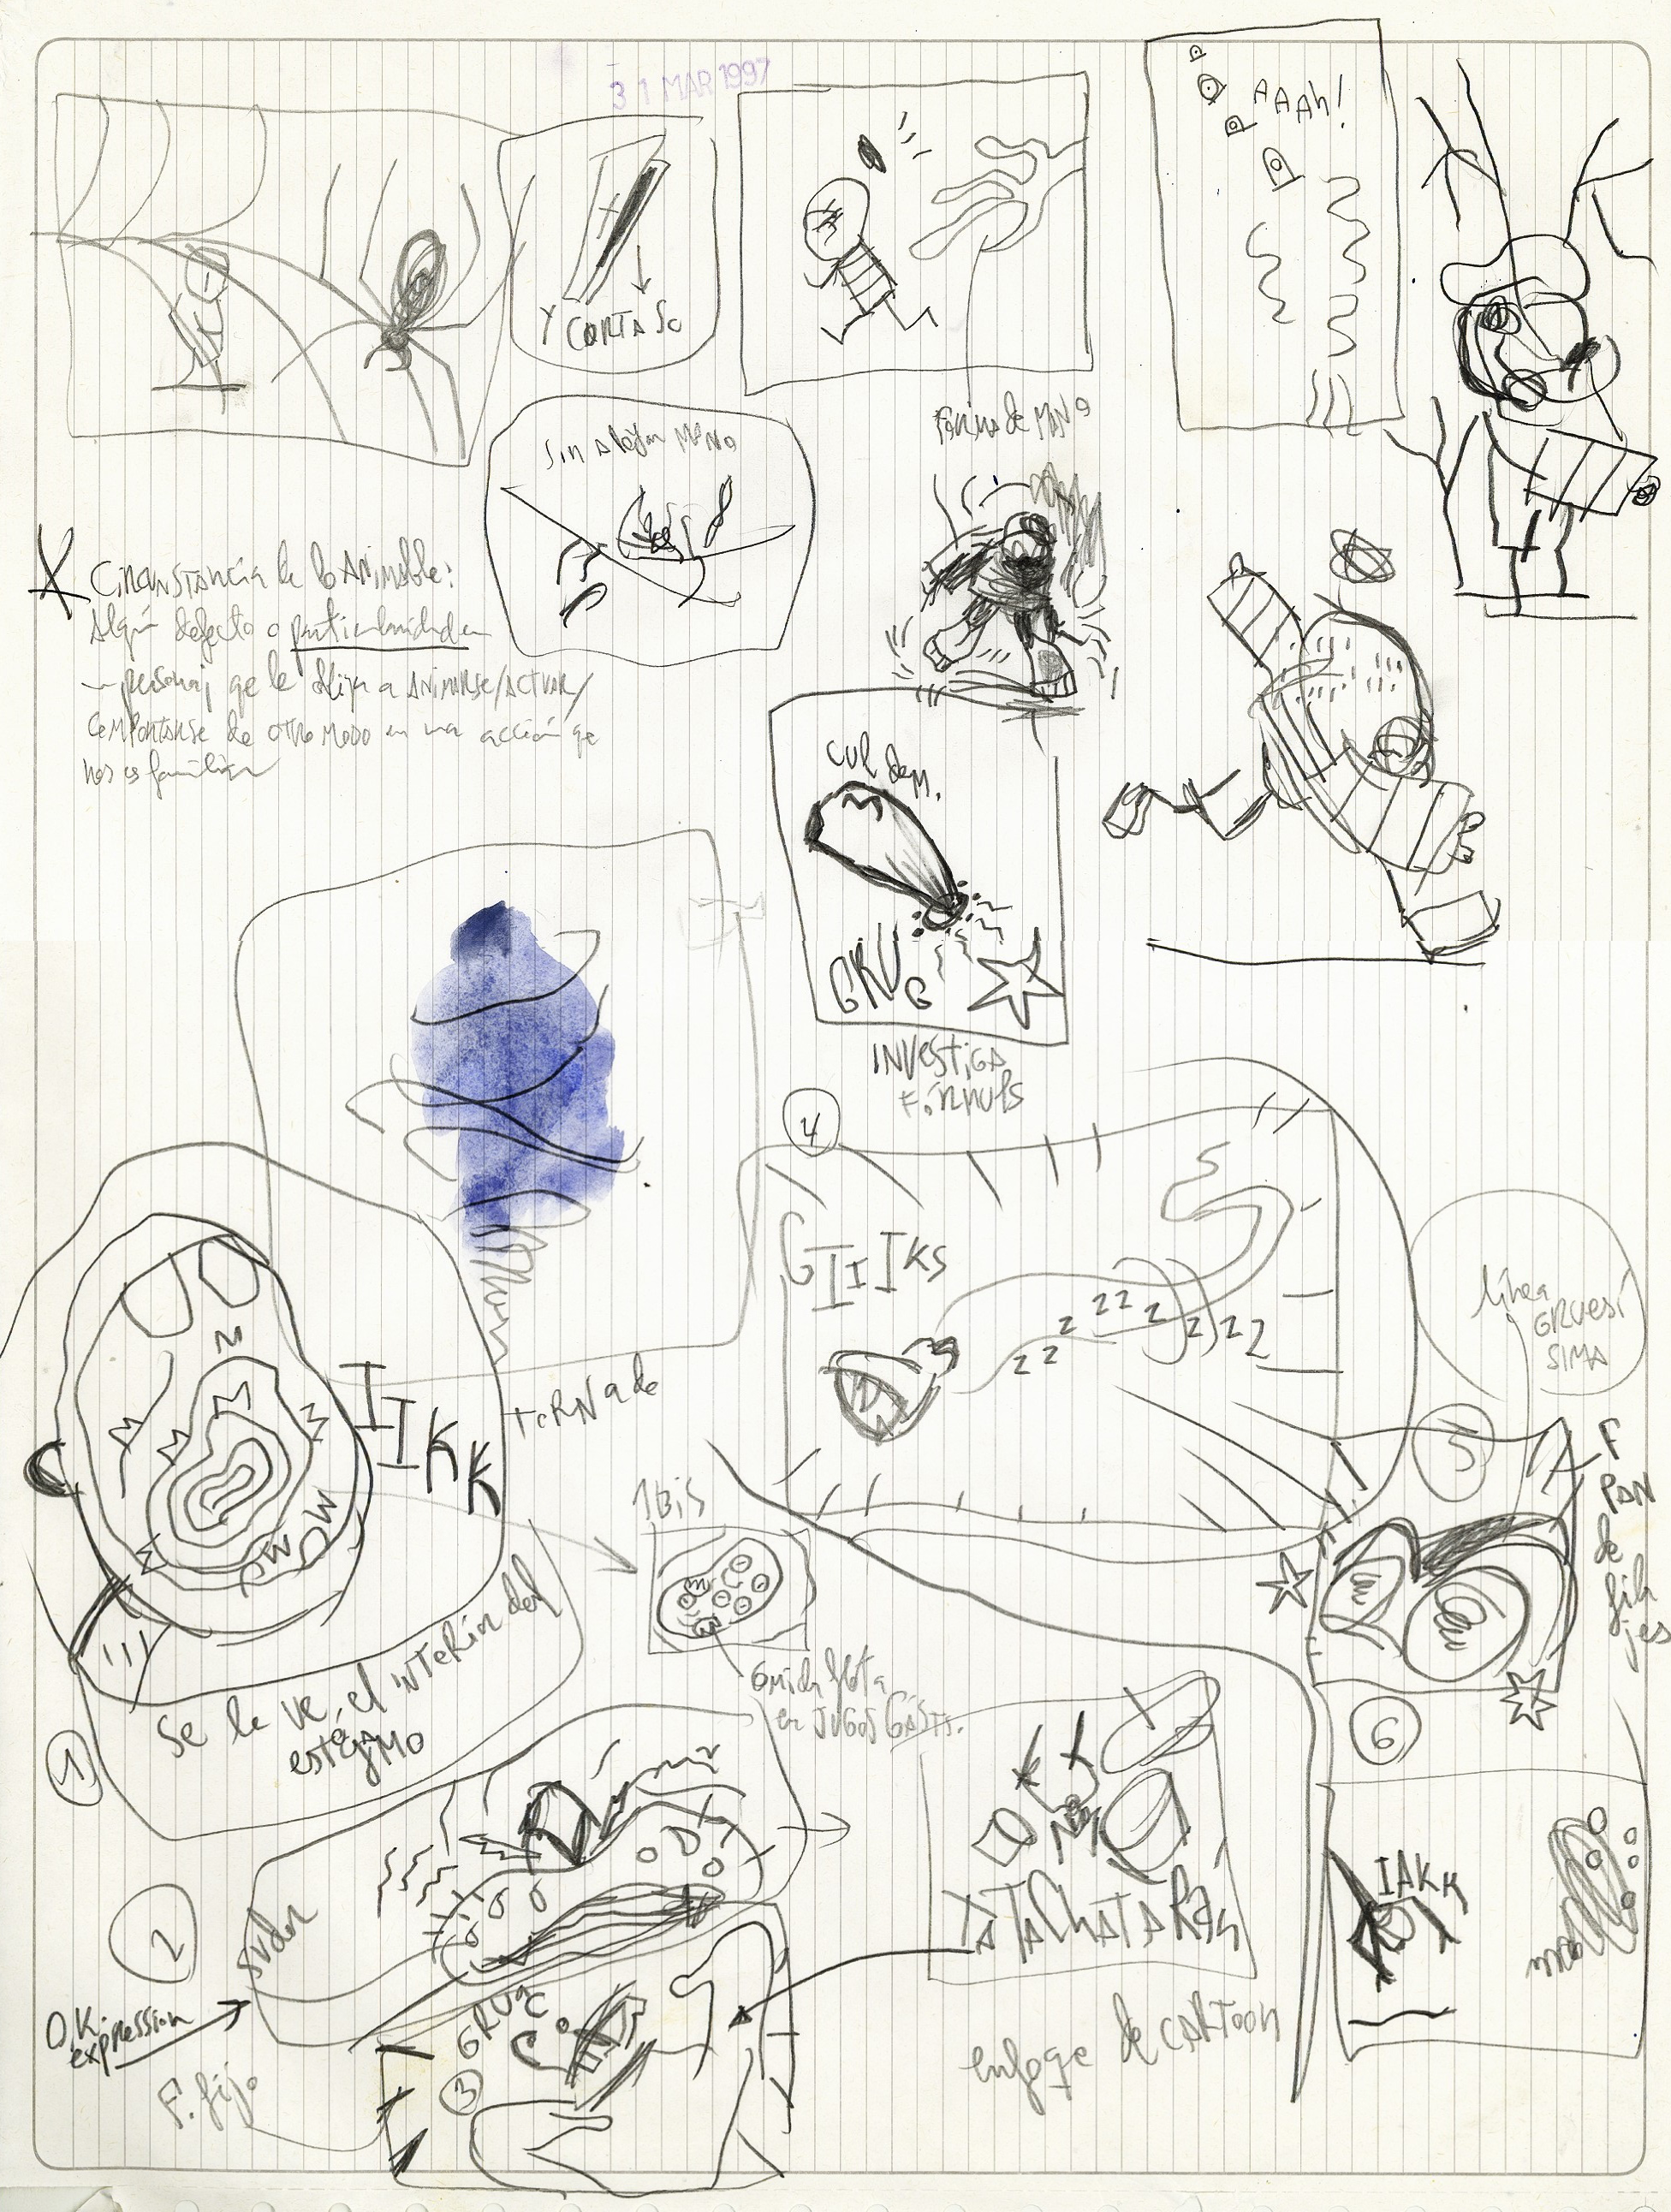 31 MAR 1997
AAAh!
Y CORTA
Sin alejar MANO
Forma de MANO
X Circunstancia de lo Animable:
Algún defecto o particularidad en
personaj qe le obliga a ANIMARSE/ACTUAR/
COMPORTARSE de otro modo en una acción qe
nos es familiar
CUL de M.
GRUG
INVESTIGA
FÓRMULS
4
GIIIKS
z z z z z z z z
línea
GRUESÍ
SIMA
IIKK
TORNADO
1 Bis
5
F
PAN
de
fila
jes
Se le ve el INTERIOR del
estógMO
1
Comida flota
en JUGOS GÁSTS.
6
2
sudor
YATACHATARÁN
IAKK
O.K.
expression
GRUC
3
F. fijo
enfoqe de CARTOON